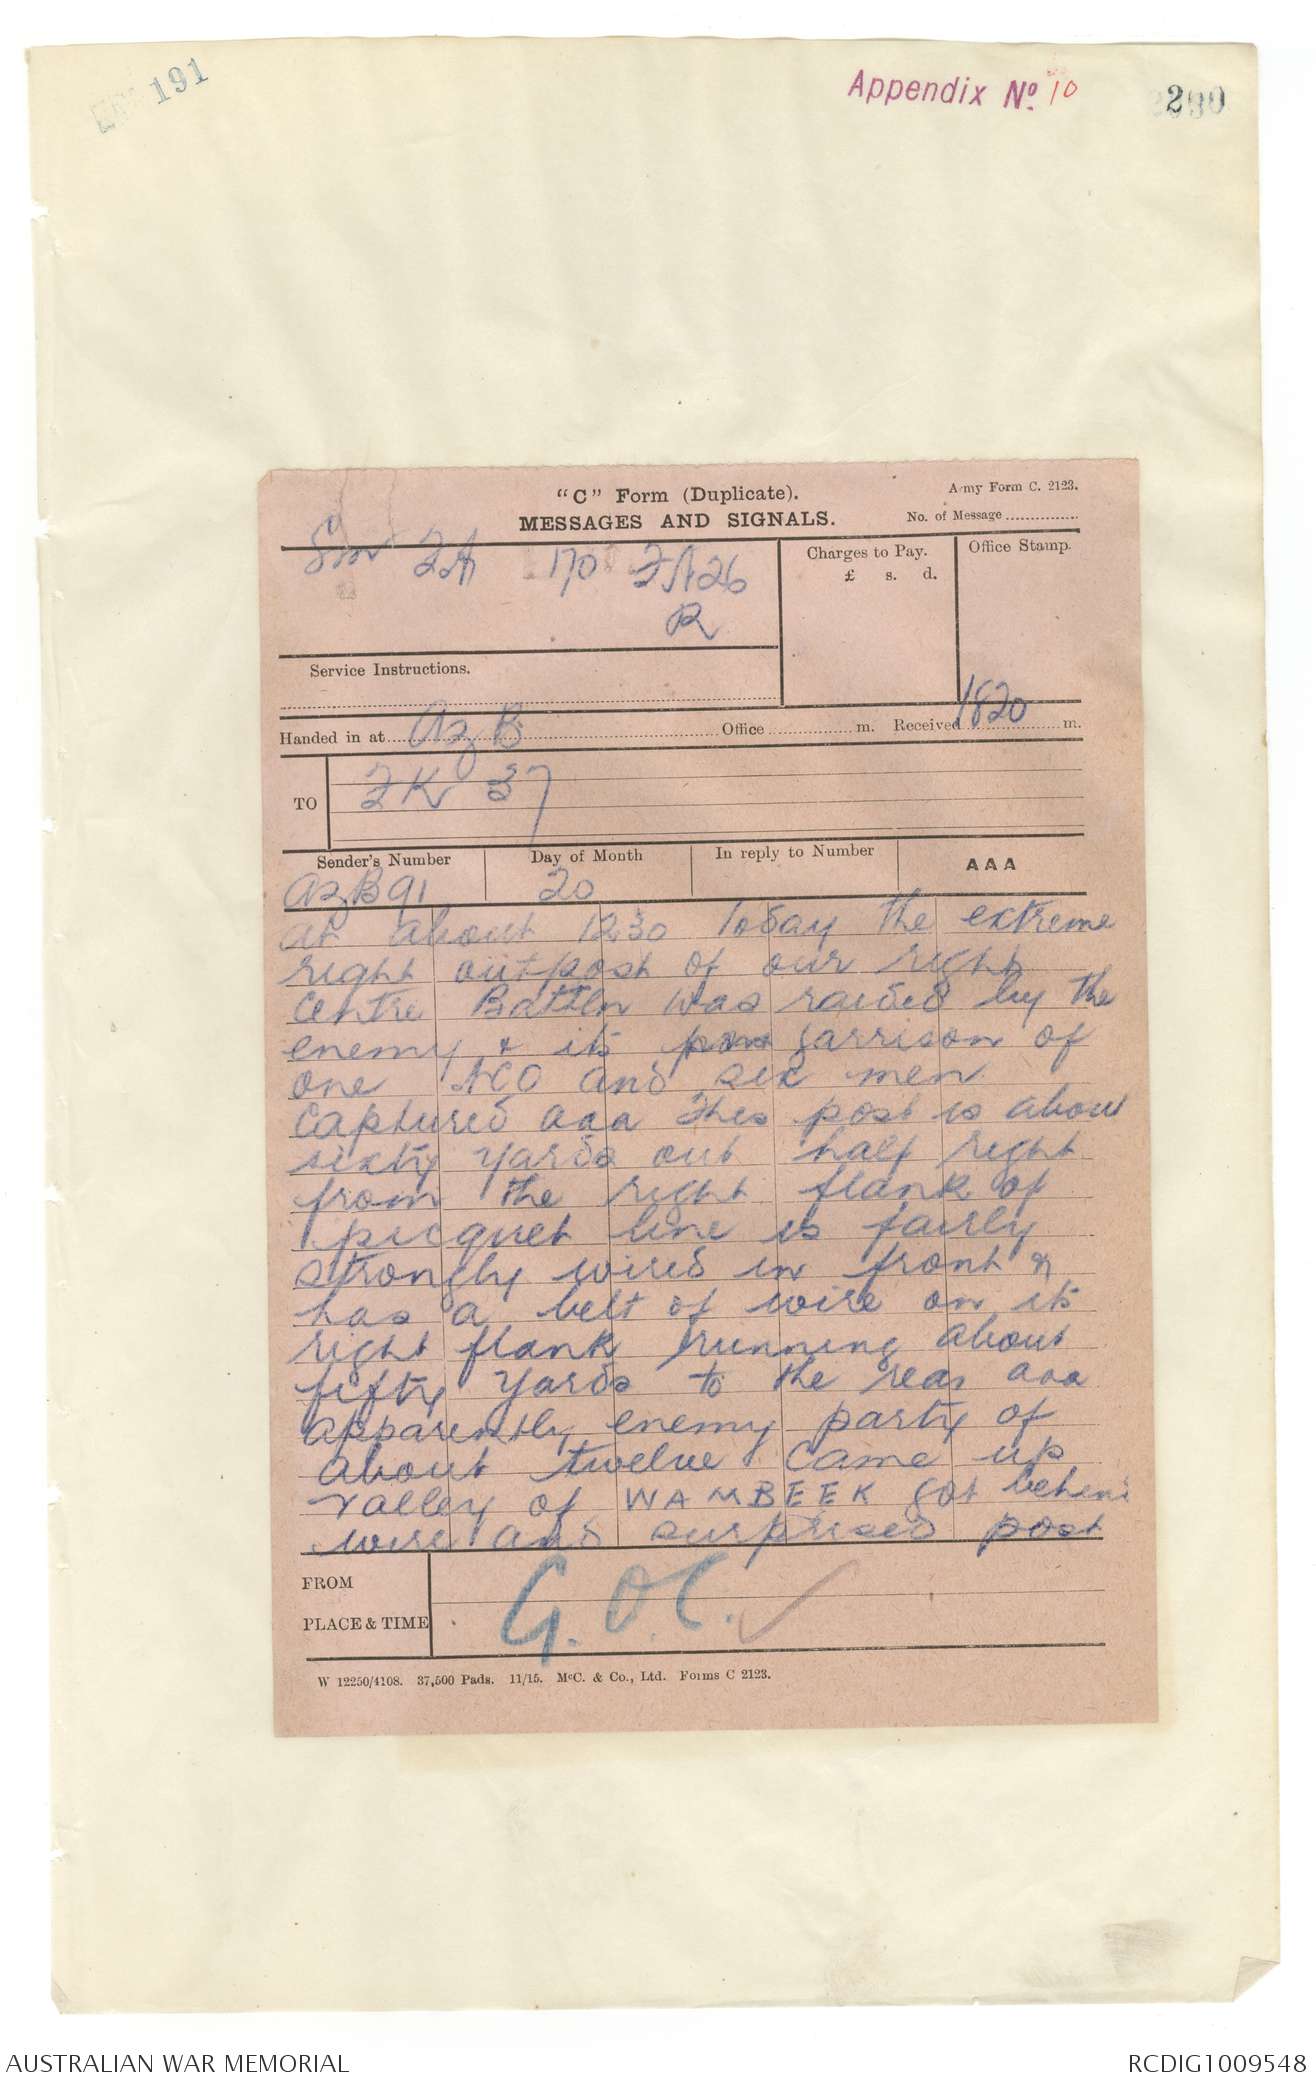 191
Appendix No. 10
290
"C" Form (Duplicate).
Army Form C. 2123.
MESSAGES AND SIGNALS.
No. of Message
Sm ZA 170 ZA 26
R
Charges to Pay.
£ s. d.
Office Stamp.
Service Instructions.
Handed in at AZB Office m. Received 1820 m.
TO ZK 37
Sender's Number Day of Month In reply to Number AAA
AZB 91 20
at about 1230 today the extreme
right outpost of our right
centre Battln was raided by the
enemy & its garrison of
one NCO and six men
captured aaa This post is about
sixty yards out half right
from the right flank of
picquet line is fairly
strongly wired in front &
has a belt of wire on its
right flank running about
fifty yards to the rear aaa
apparently enemy party of
about twelve came up
valley of WAMBEEK got behind
wire and surprised post
FROM
PLACE & TIME
G.O.C.
W 12250/4108. 37,500 Pads. 11/15. McC. & Co., Ltd. Forms C 2123.
AUSTRALIAN WAR MEMORIAL
RCDIG1009548